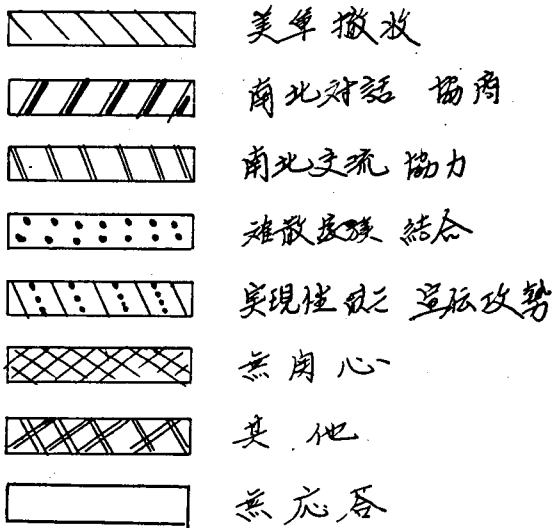 美軍撤收
南北対話 協商
南北交流 協力
離散家族 結合
実現性 없는 宣伝攻勢
無関心
其他
無応答